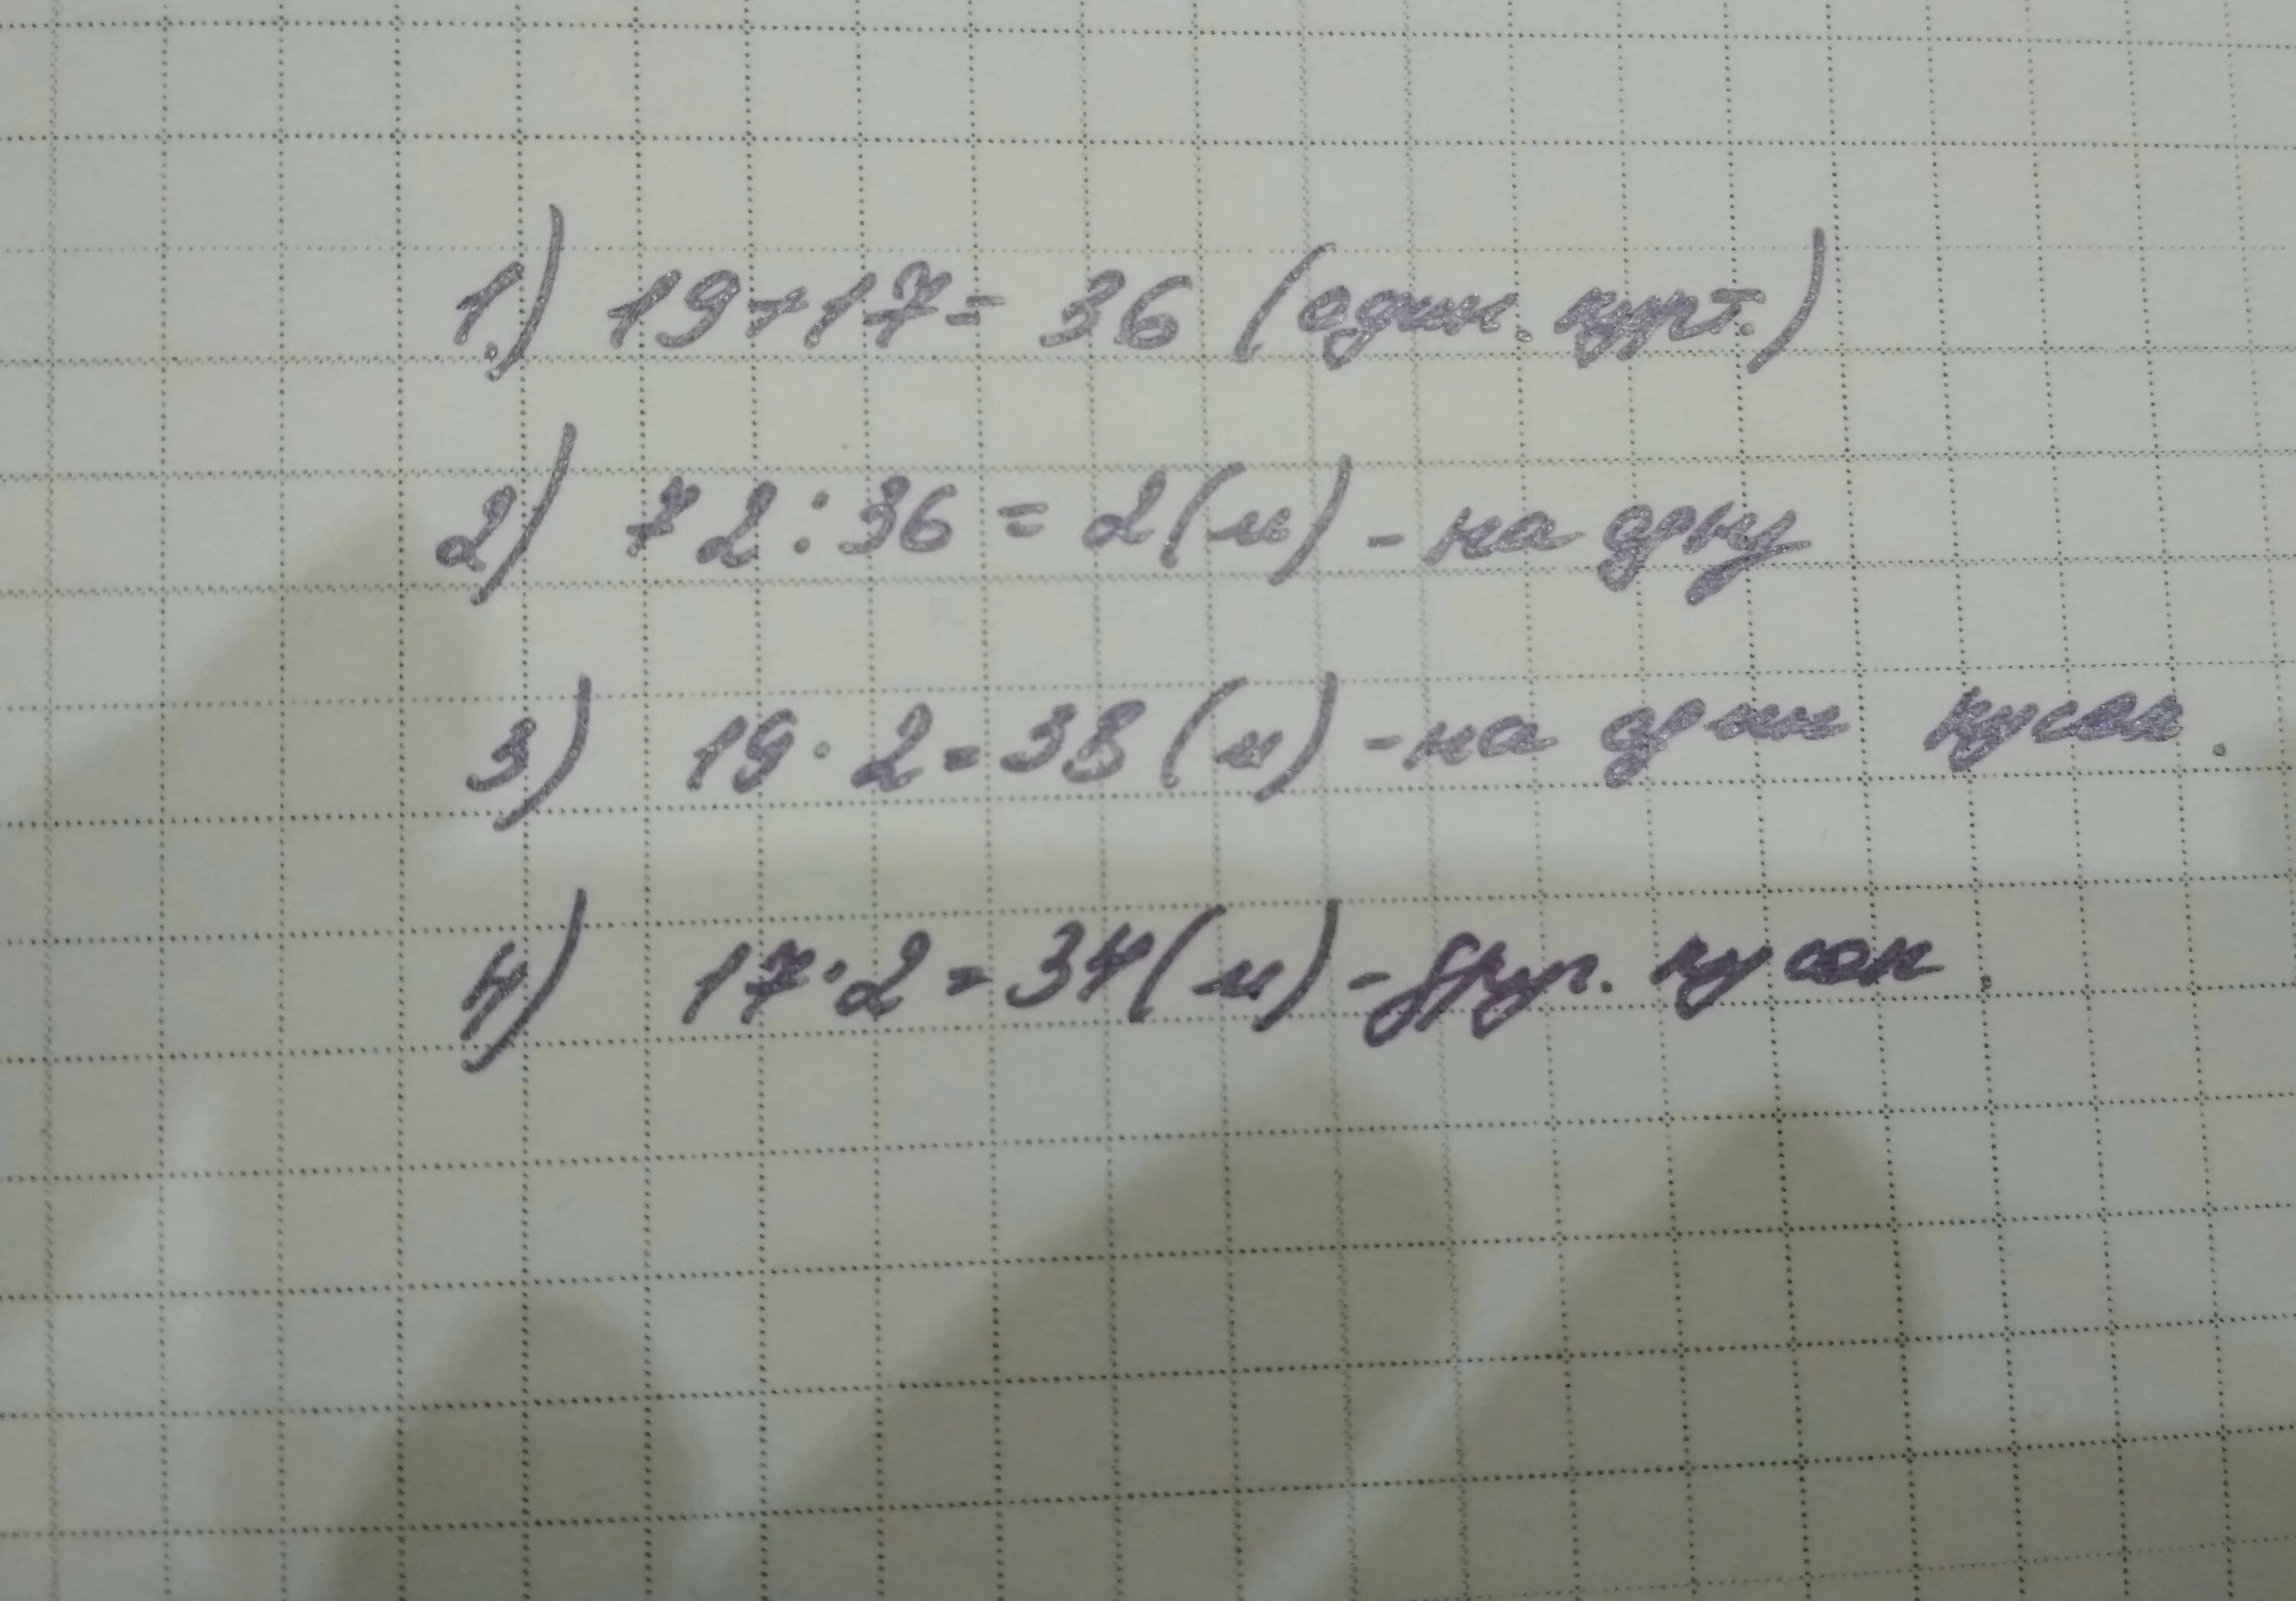 1.) 19+17= 36 (один. курт.)
2) 72:36 = 2(м) - на одну
3) 19 · 2 = 38 (м) - на один кусок.
4) 17 · 2 = 34 (м) - друг. кусок.